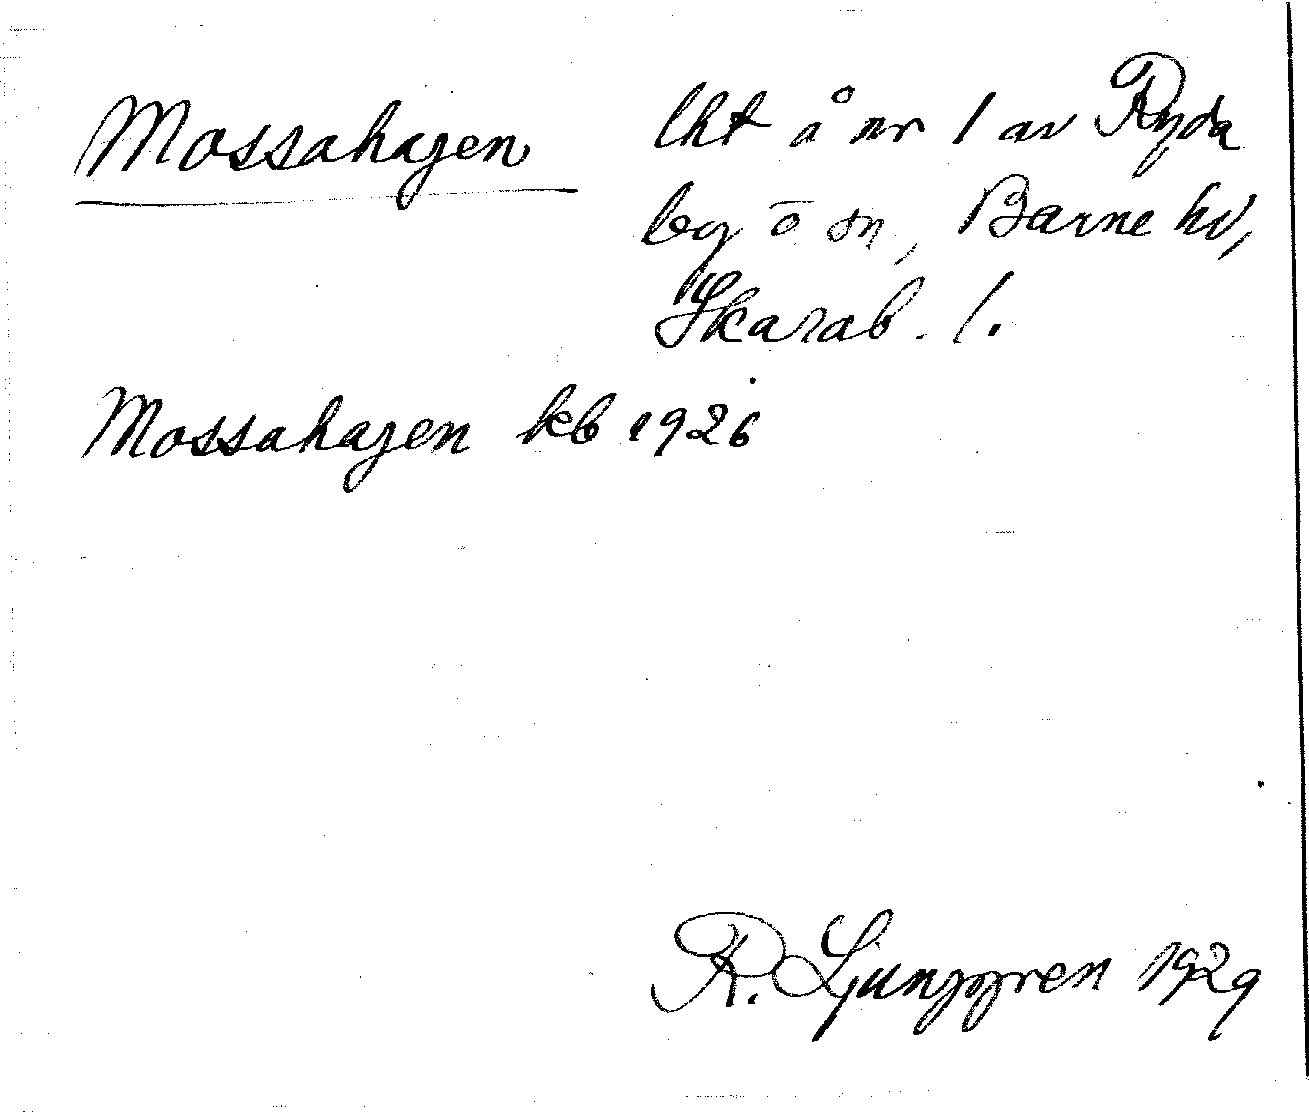 Mossahagen
lht å nr 1 av Ryda
by o sn, Barne hd,
Skarab. l.
Mossahagen kb 1926
R. Ljunggren 1929